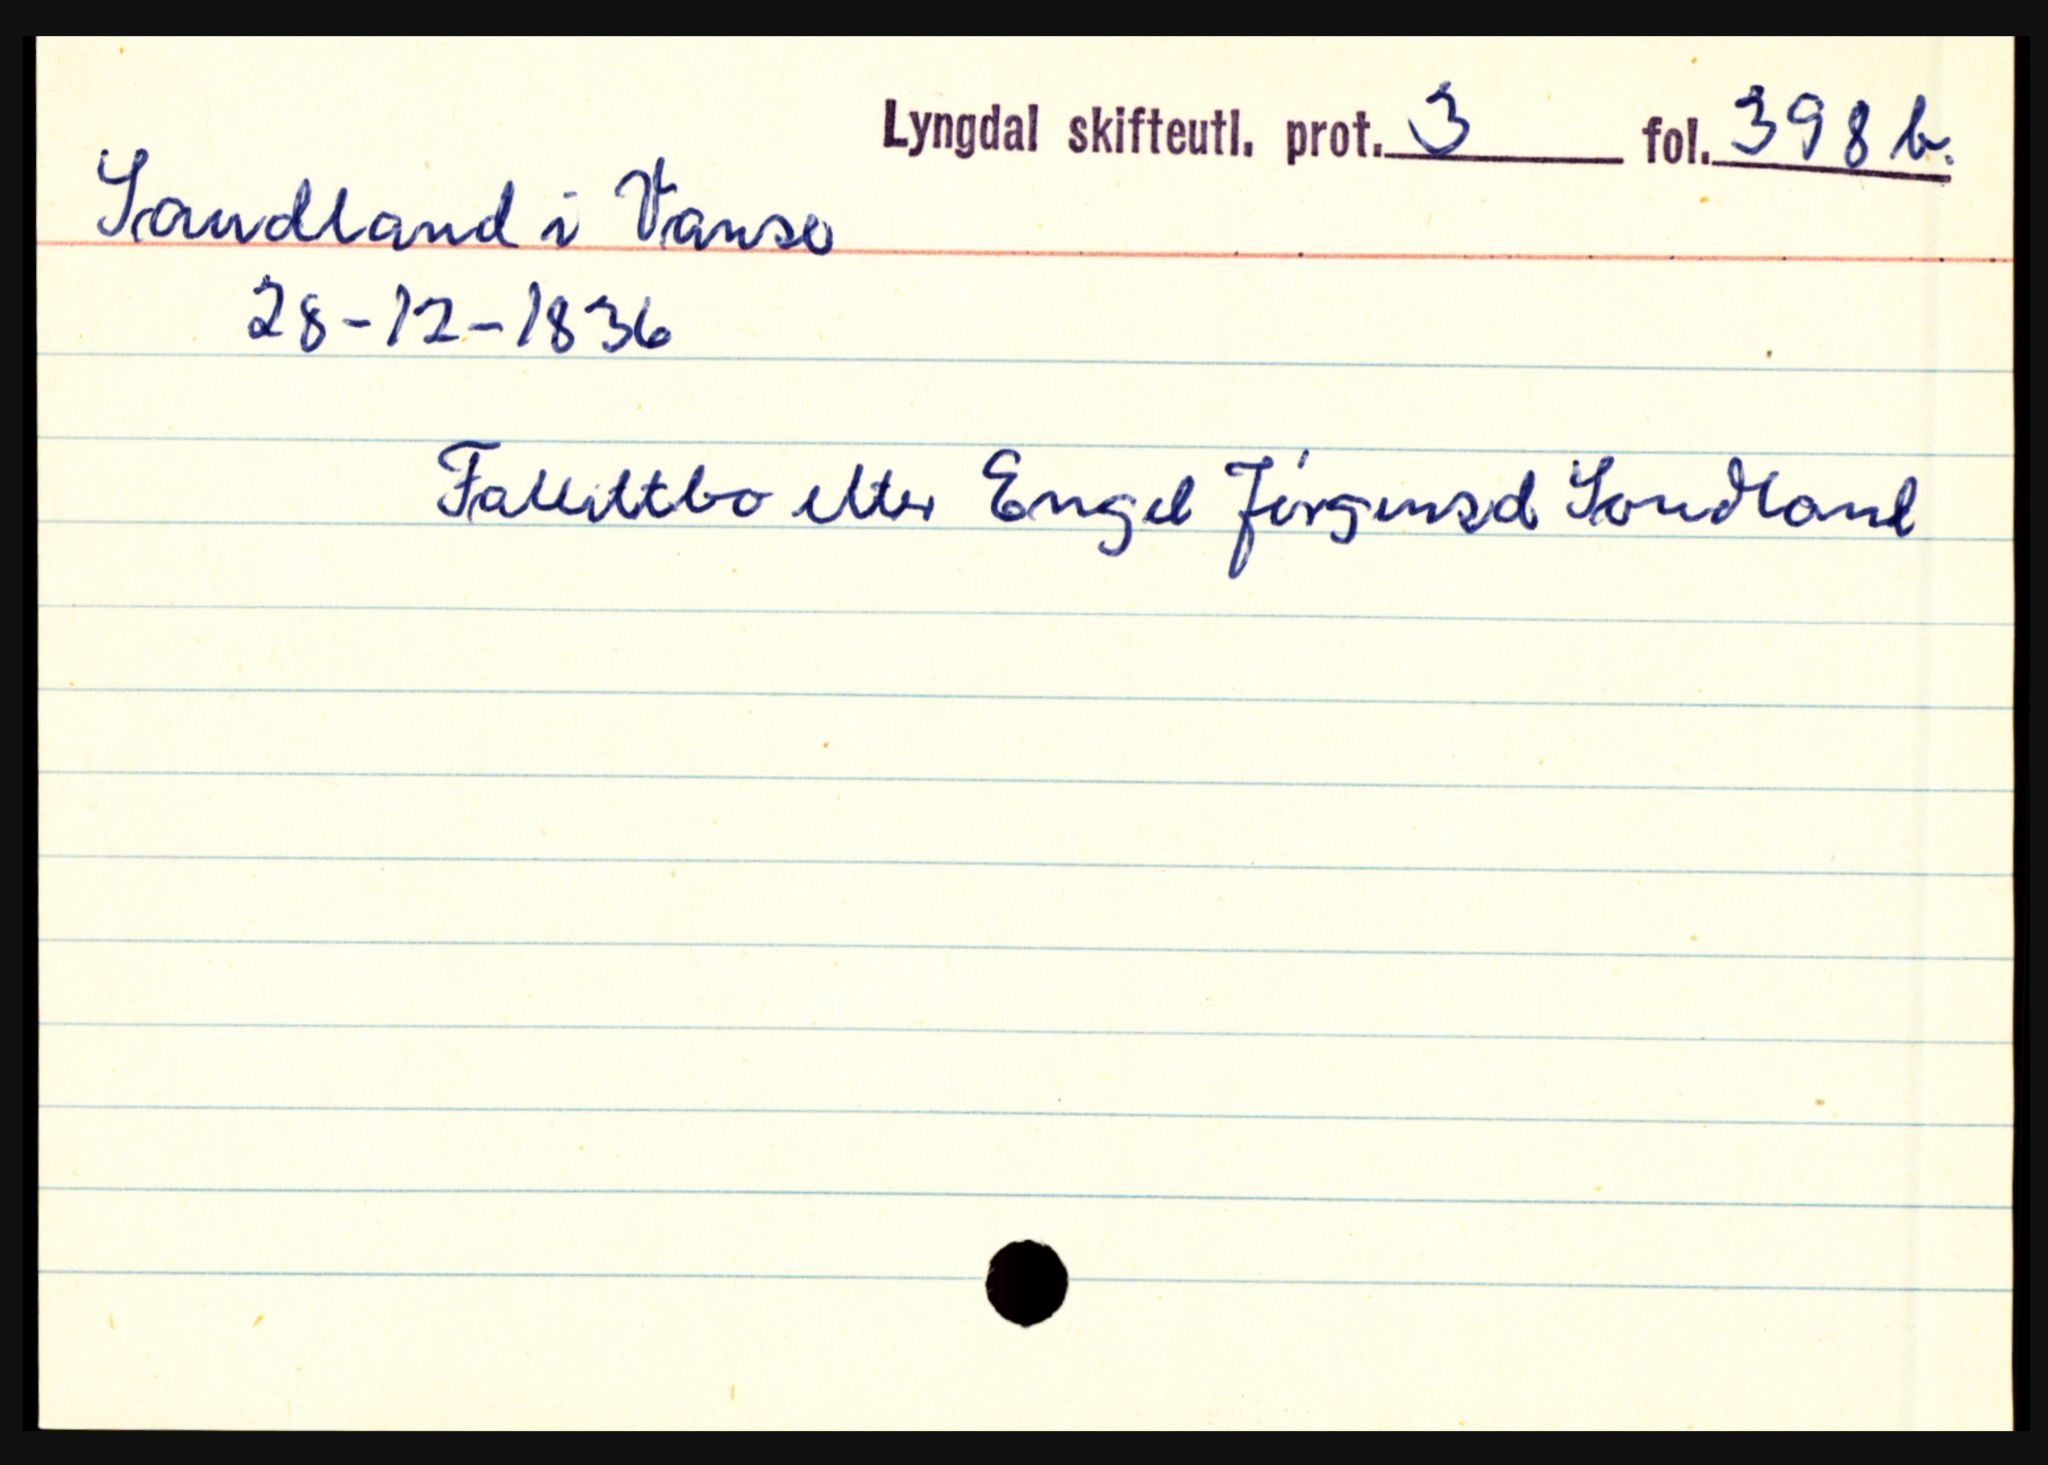 Lyngdal skifteutl. prot. 3 fol. 398 b.
Sandland i Vanse
28-12-1836
Fallittbo etter Engel Jörgensd Sandland